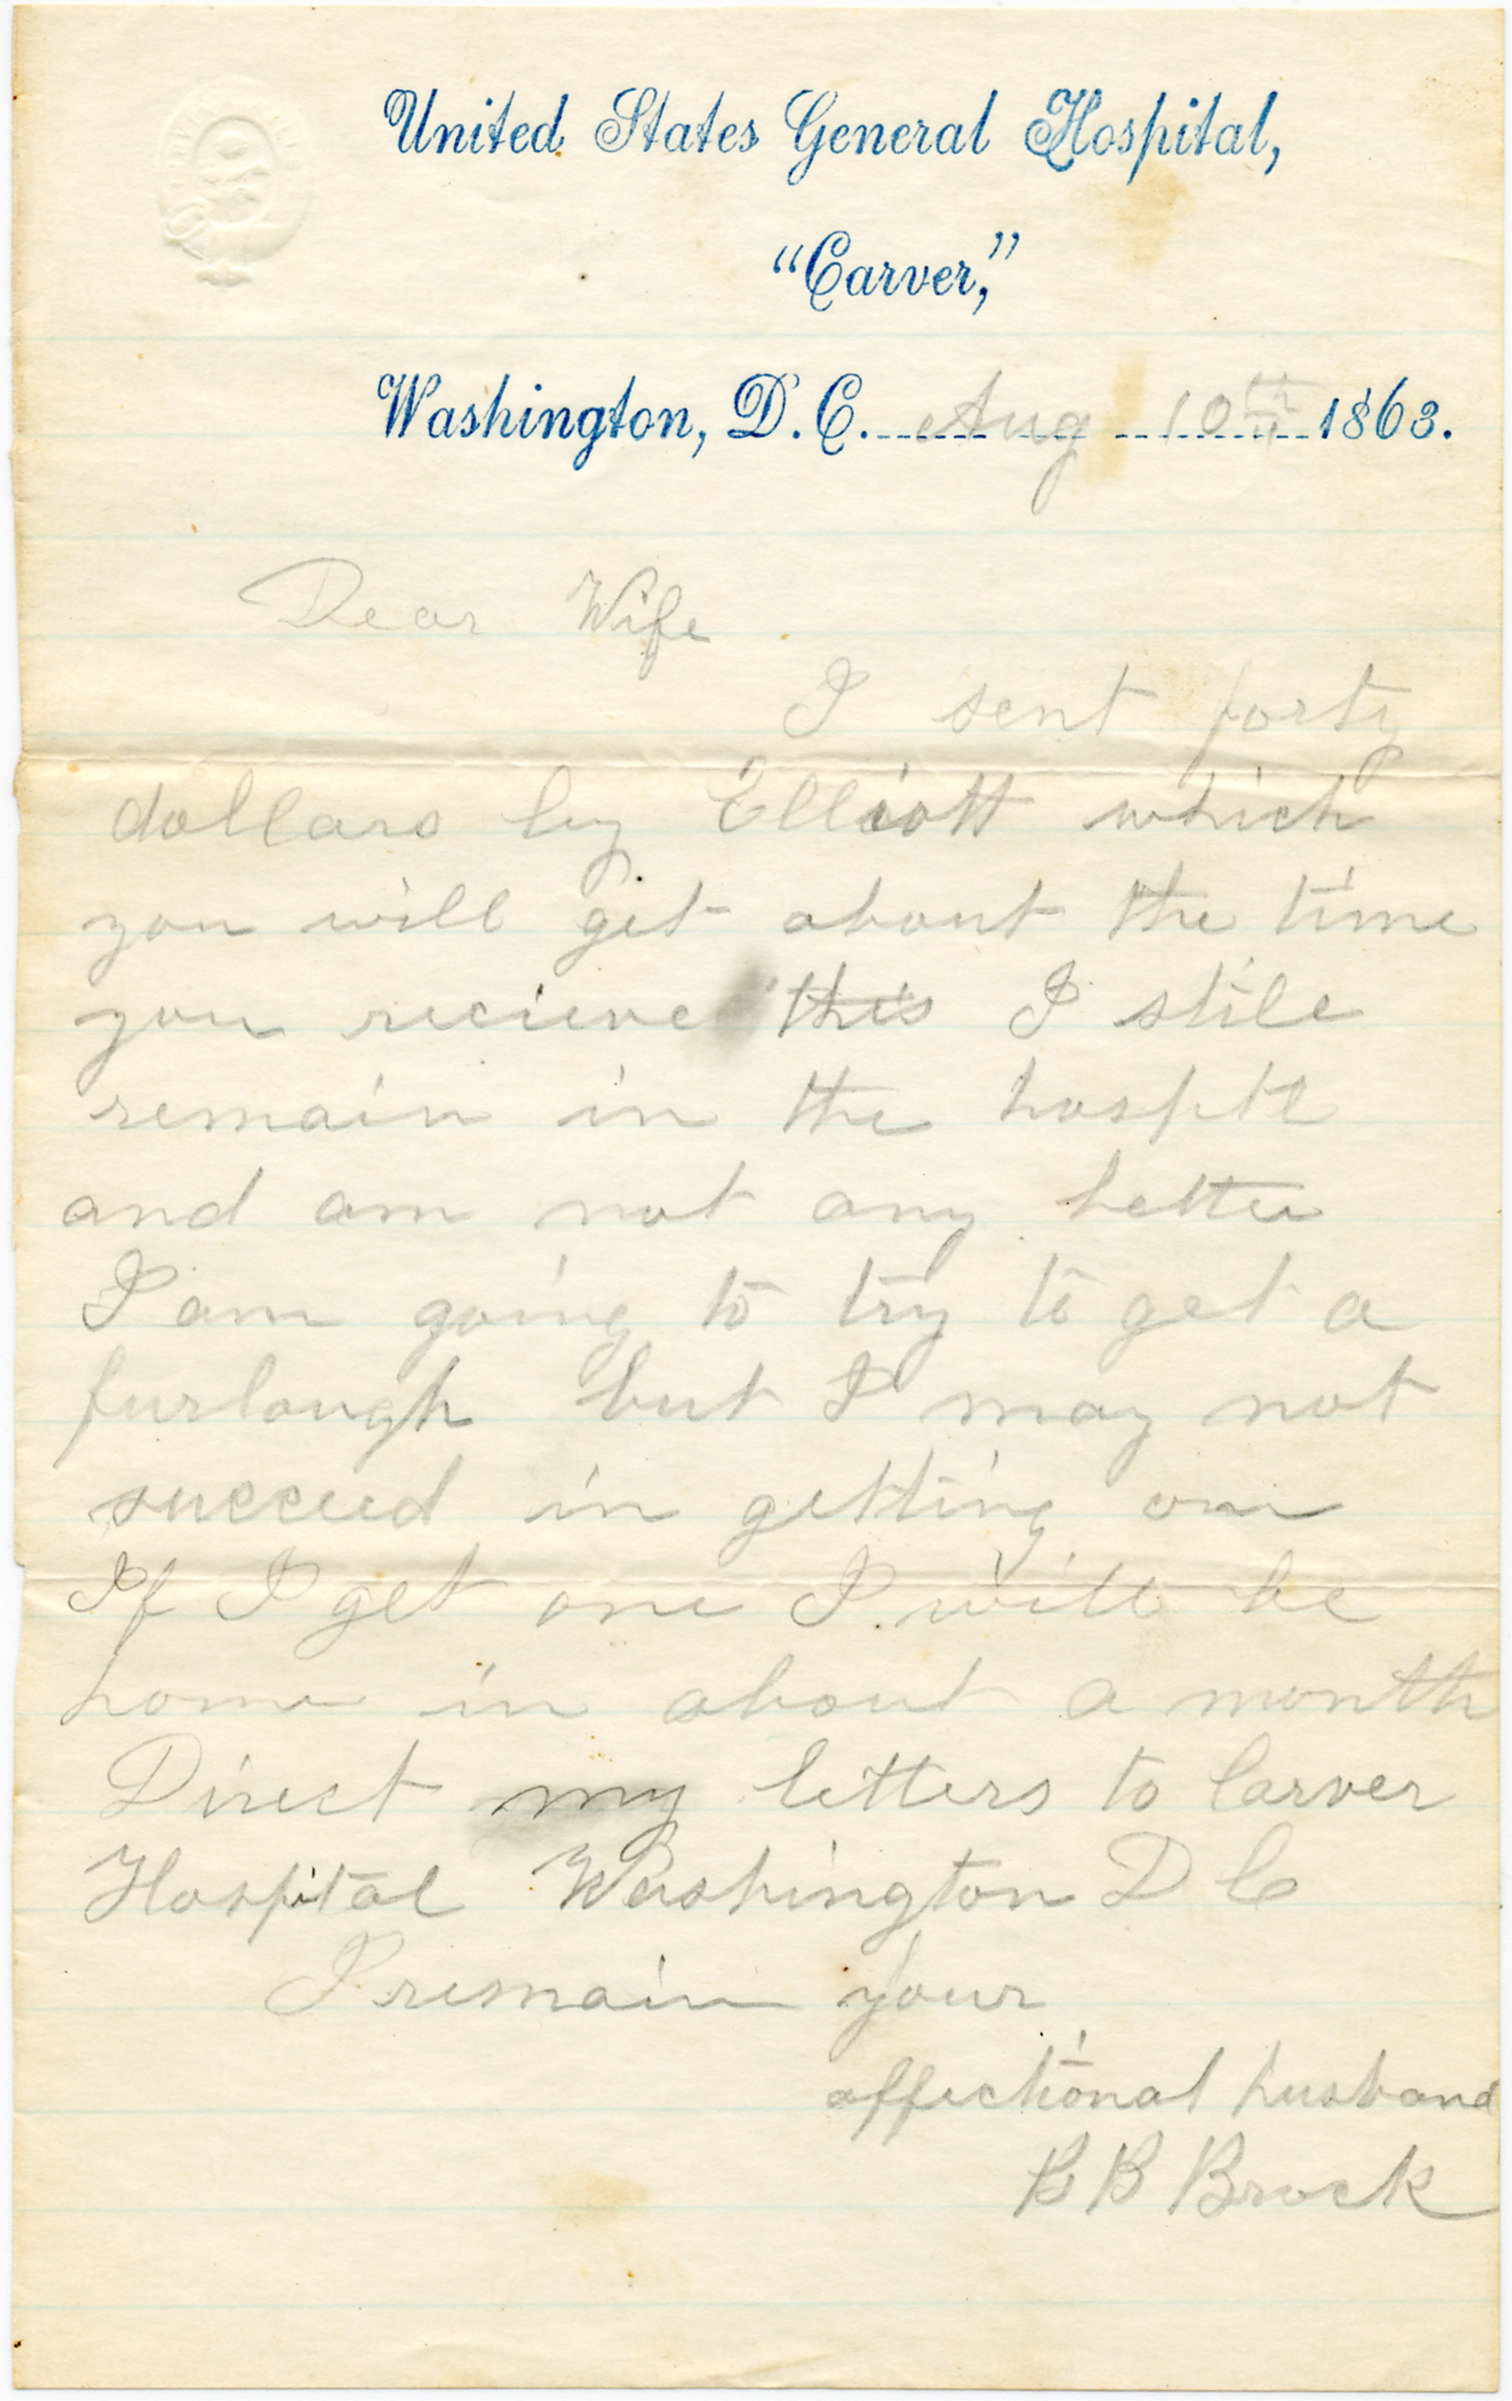 United States General Hospital,
"Carver,"
Washington, D.C. Aug 10th 1863.
Dear Wife
I sent forty
dollars by Elliott which
you will get about the time
you recieve this I stile
remain in the hosptl
and am not any better
I am going to try to get a
furlough but I may not
succeed in getting one
If I get one I will be
home in about a month
Direct my letters to Carver
Hospital Washington D C
I remain your
affectional husband
B B Brock